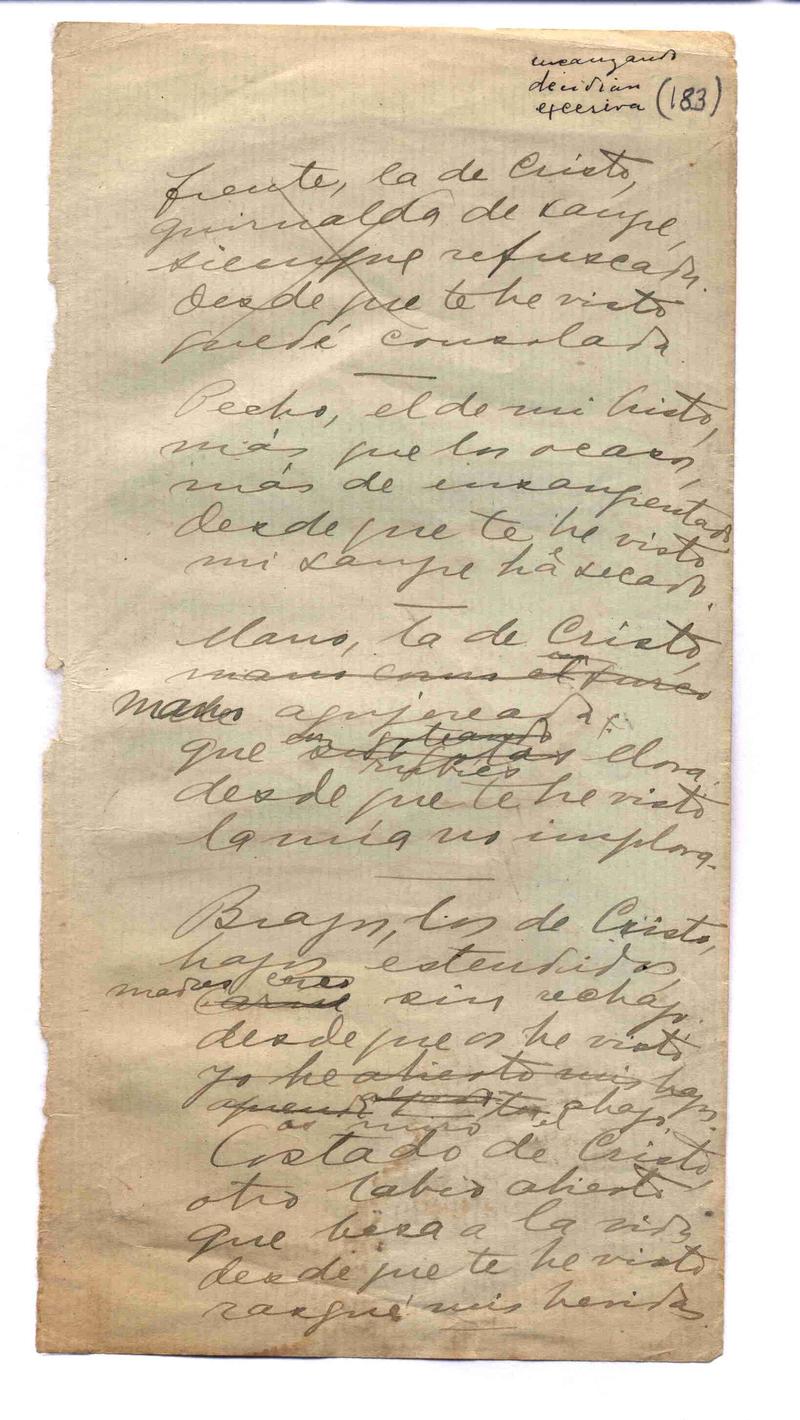 decidian
excesiva (183)
frente, la de Cristo,
guirnalda de sangre,
siempre refrescada.
Desde que te he visto
quedé consolada
Pecho, el de mi Cristo,
más que los ocasos,
más de ensangrentado
Desde que te he visto
mi sangre há secado.
Mano, la de Cristo,
mano como el
mano agujereada
que en goteando
rubíes
desde que te he visto
la mía no implora.
Brazos, los de Cristo,
brazos estendidos,
sin rechazo.
desde que os he visto
yo he abierto mis brazos
os miro el abrazo.
Costado de Cristo,
otro labio abierto
que besa a la vida
desde que te he visto
rasgué mis heridas.